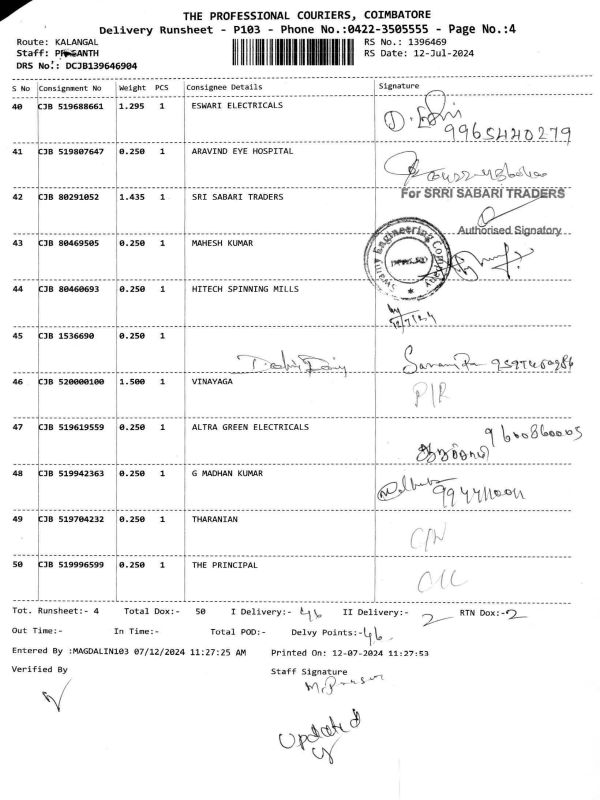 THE PROFESSIONAL COURIERS, COIMBATORE
Delivery Runsheet - P103 - Phone No.:0422-3505555 - Page No.:4
Route: KALANGAL
RS No.: 1396469
Staff: PRASANTH
RS Date: 12-Jul-2024
DRS No.: DCJB139646904
S No Consignment No Weight PCS Consignee Details Signature
40 CJB 519688661 1.295 1 ESWARI ELECTRICALS
9965440279
41 CJB 519807647 0.250 1 ARAVIND EYE HOSPITAL
42 CJB 80291052 1.435 1 SRI SABARI TRADERS For SRRI SABARI TRADERS
Authorised Signatory
43 CJB 80469505 0.250 1 MAHESH KUMAR
Swamy Engineering Company
44 CJB 80460693 0.250 1 HITECH SPINNING MILLS
45 CJB 1536690 0.250 1
46 CJB 520000100 1.500 1 VINAYAGA P/R
47 CJB 519619559 0.250 1 ALTRA GREEN ELECTRICALS 9600860005
48 CJB 519942363 0.250 1 G MADHAN KUMAR
49 CJB 519704232 0.250 1 THARANIAN
50 CJB 519996599 0.250 1 THE PRINCIPAL
Tot. Runsheet:- 4 Total Dox:- 50 I Delivery:- 46 II Delivery:- 2 RTN Dox:- 2
Out Time:- In Time:- Total POD:- Delvy Points:- 46
Entered By :MAGDALIN103 07/12/2024 11:27:25 AM Printed On: 12-07-2024 11:27:53
Verified By Staff Signature
Updated